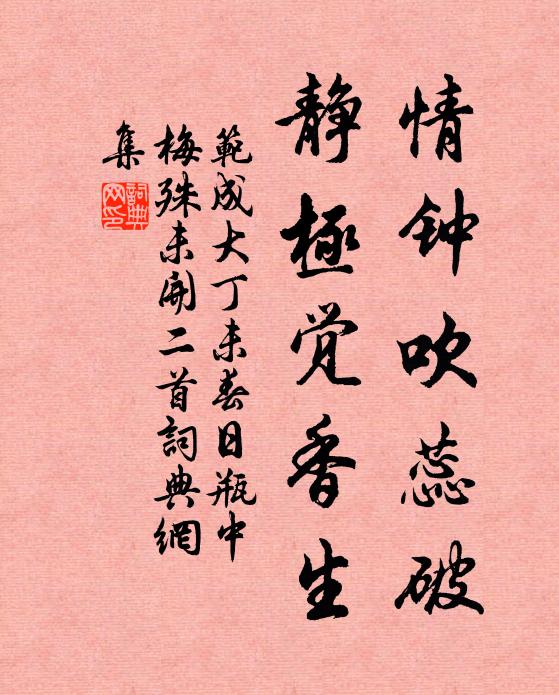 情钟吹蕊破
静極觉香生
範成大丁未春日瓶中
梅殊未開二首詞典網
集
詞典网印